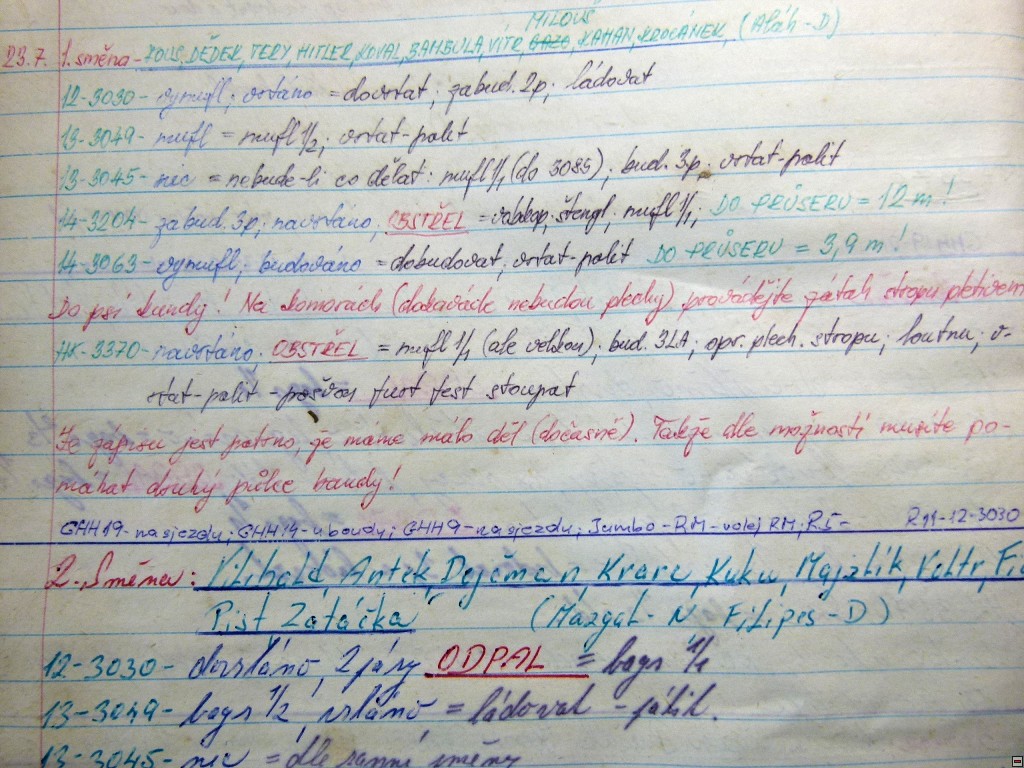 MILOUŠ
23.7. 1. směna - FOUS, DĚDEK, TERY, HITLER, KOVAL, BAMBULA, VÍTR, KAHAN, KROCÁNEK, (Aláh-D)
12-3030- vymufl; vrtáno = dovrtat; zabud. 2p; ládovat
13-3049- mufl = mufl 1/2; vrtat-palit
13-3045- nic = nebude-li co dělat: mufl 1/1 (do 3085); bud. 3p; vrtat-palit
14-3204- zabud. 3p; navrtáno, OBSTŘEL = štengl, mufl 1/1; DO PRŮSERU = 12 m!
14-3063- vymufl; budováno = dobudovat, vrtat-palit DO PRŮSERU = 3,9 m!
Do psí kundy! Na komorách (dokaváde nebudou plechy) provádějte zátah stropu pletivem
HK-3370- navrtáno. OBSTŘEL = mufl 1/1 (ale velkou); bud. 3LA; opr. plech. stropu; loutnu; v-
rtat-palit - furt fest stoupat
Ze zápisu jest patrno, že máme málo děl (dočasně). Takže dle možností musíte po-
máhat druhý půlce bandy!
GHH19-na sjezdu; GHH14-u boudy; GHH9-na sjezdu; Jumbo-RM-volej RM; R5- R11-12-3030
2. Směna: Vilibald, Antek, Dejčman, Kuku, Majzlík,
Pist Zatáčka (Mázgal-N Filipes-D)
12-3030- dovrtáno, 2 jásy ODPAL = bagr 1/1
13-3049- bagr 1/2, vrtáno = ládovat - pálit.
13-3045- nic = dle ranní směny